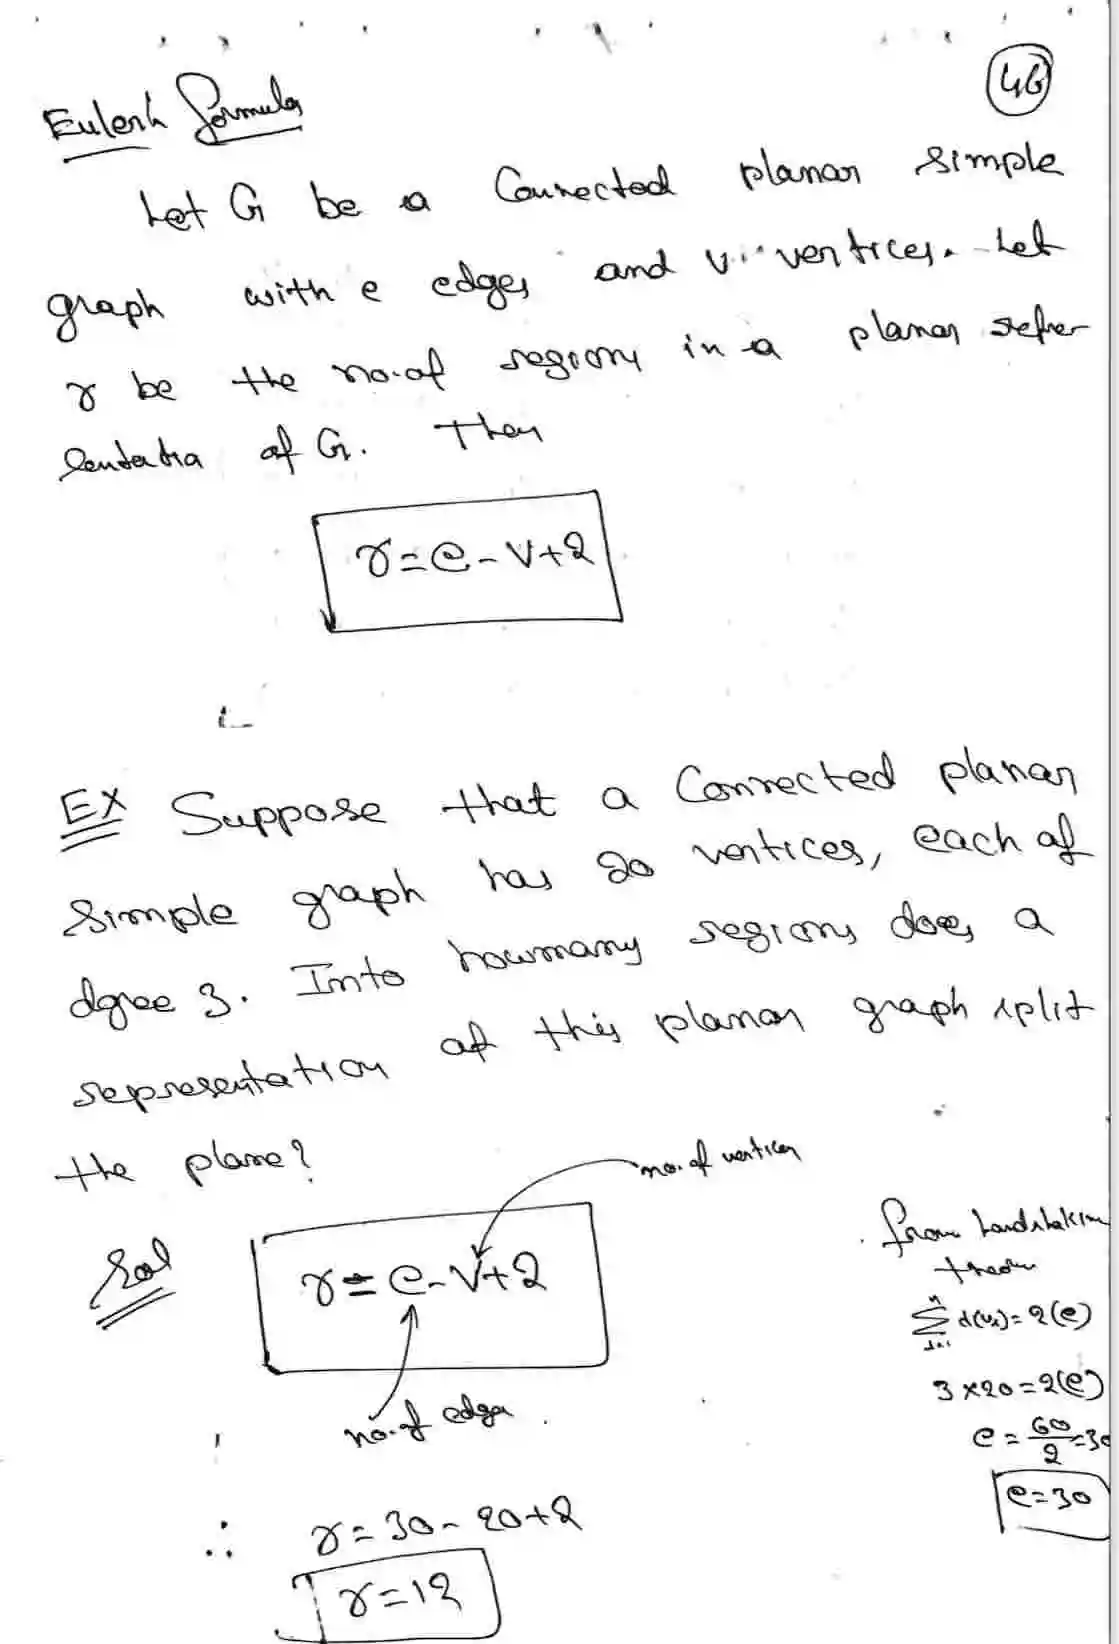 46
Euler's Formula
Let G be a Connected planar simple
graph with e edges and v vertices. Let
r be the no.of regions in a planar repre
sentation of G. Then
r=e-v+2
EX Suppose that a Connected planar
simple graph has 20 vertices, each of
dgree 3. Into howmany regions does a
representation of this planar graph split
the plane?
no.of vertices
Sol
r=e-v+2
no.of edges.
from handshaking
theorem
n
∑ d(vi)=2(e)
i=1
3×20=2(e)
e=60/2=30
e=30
∴ r=30-20+2
r=12